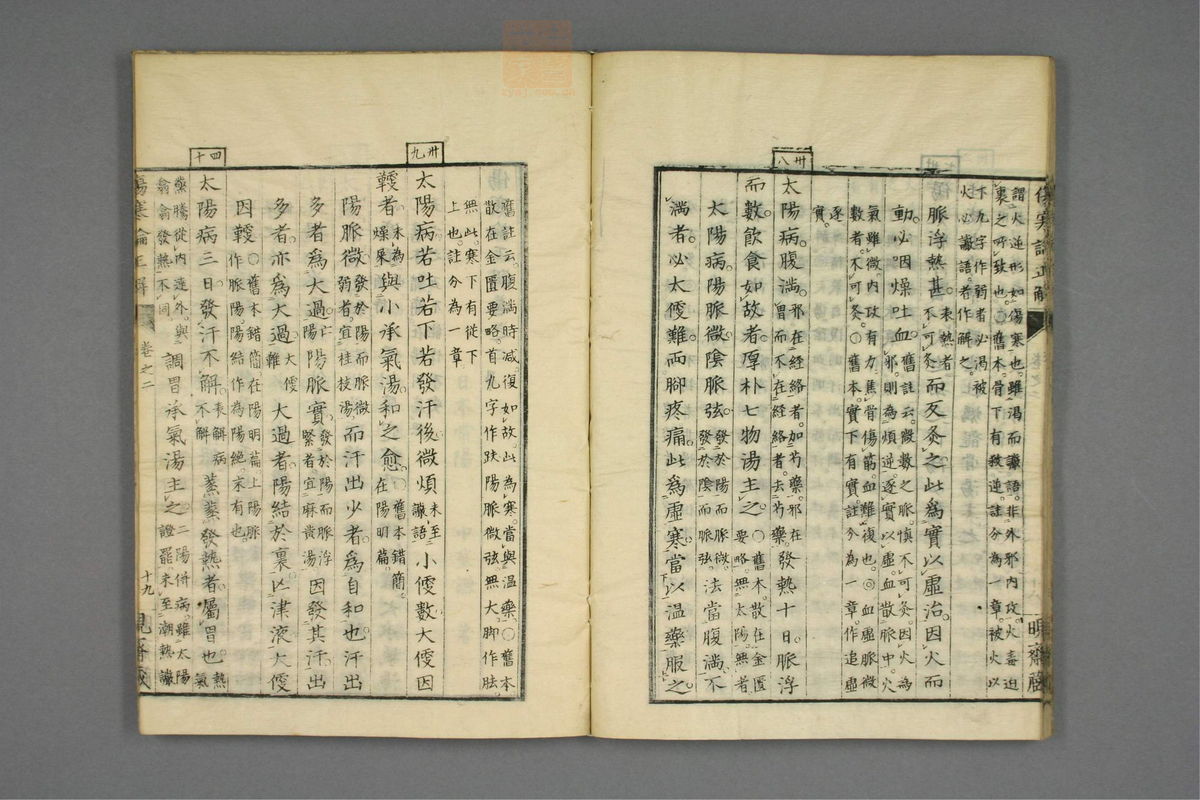 卅八
謂火逆形如傷寒也雖渴而譫語非外邪內攻火毒迫
裏之所致也○舊本骨下有致逆註分為一章被火以
下九字作弱者必渴被
火必譫語者作解之
脈浮熱甚表熱者不可灸而反灸之此爲實以虛治因火而
動必因燥吐血舊註云微數之脈慎不可灸因火為
邪則為煩逆逐實以虛血散脈中火
氣雖微內攻有力焦骨傷筋血難復也◎血虛脈微
數者不可灸○舊本實下有實註分為一章作追虛
逐
實
太陽病腹滿邪在經絡者如芍藥邪在
胃而不在經絡者去芍藥發熱十日脈浮
而數飲食如故者厚朴七物湯主之○舊本散在金匱
要略無太陽無者
太陽病陽脈微陰脈弦發於陽而脈微
發於陰而脈弦法當腹滿不
滿者必大便難兩脚疼痛此爲虛寒當以溫藥服之
卅九
四十
舊註云腹滿時减復如故此為寒當與溫藥○舊本
散在金匱要略首九字作趺陽脈微弦無大脚作胠
無此寒下有從下
上也註分為一章
太陽病若吐若下若發汗後微煩未至
譫語小便數大便因
鞕者未為
燥屎與小承氣湯和之愈○舊本錯簡
在陽明篇
陽脈微發於陽而脈微
弱者宜桂枝湯而汗出少者爲自和也汗出
多者爲大過亡
陽陽脈實發於陽而脈浮
緊者宜麻黃湯因發其汗出
多者亦爲大過大便
難大過者陽結於裏亡津液大便
因鞕○舊本錯簡在陽明篇上陽脈
作脈陽陽結作為陽絕末有也
太陽病三日發汗不解表解病
不解蒸蒸發熱者屬胃也熱
氣
薰騰從內達外與
翕翕發熱不同調胃承氣湯主之二陽併病雖太陽
證罷未至潮熱譫
卷之二
十九